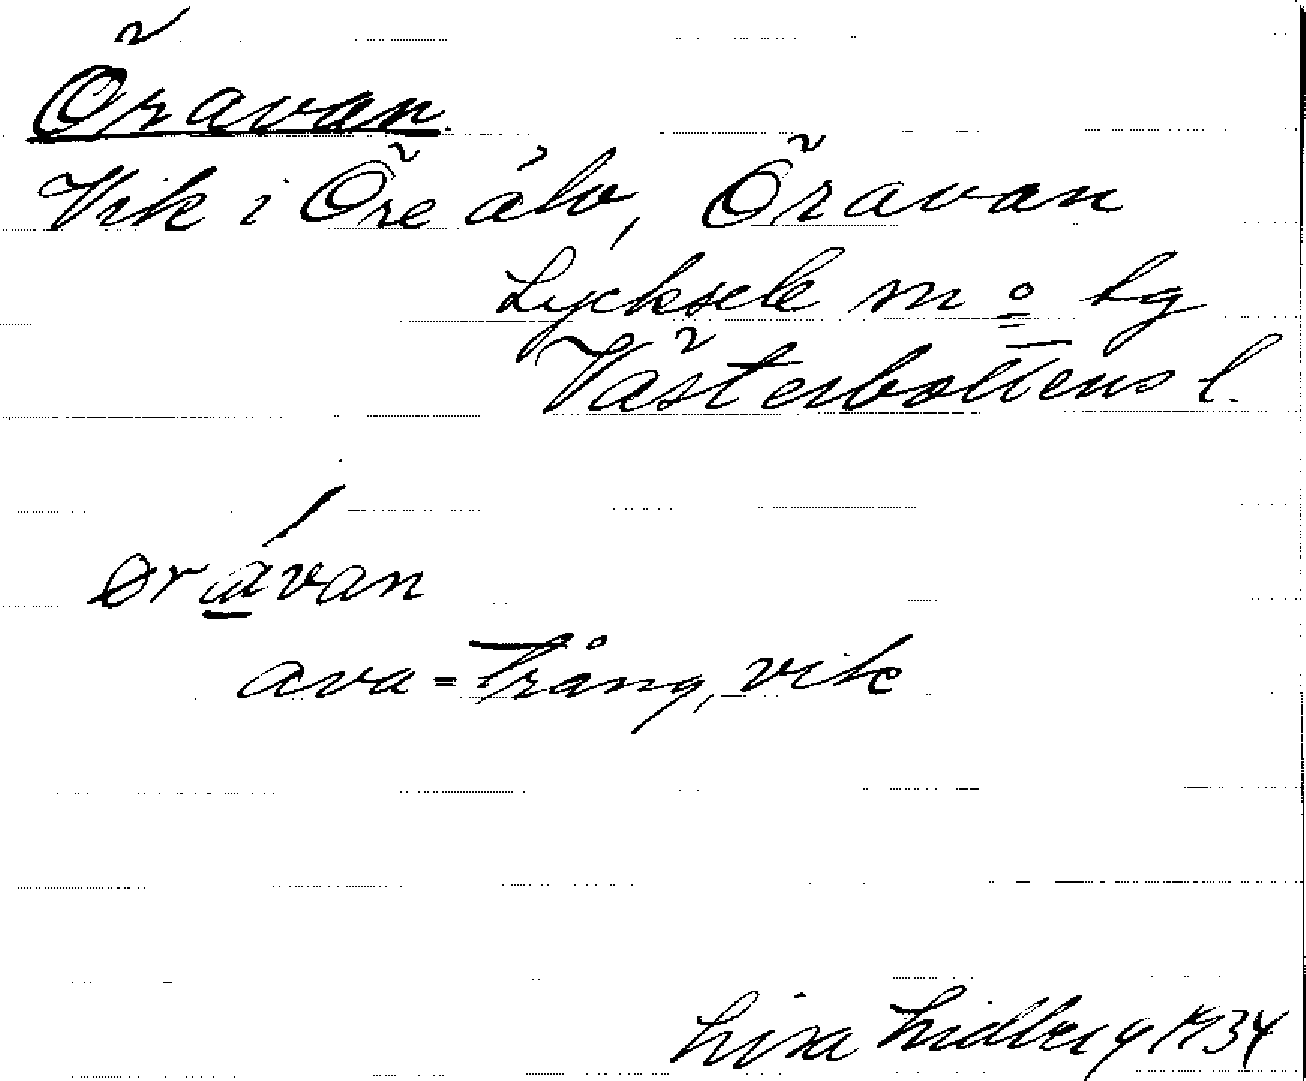 Öravan.
Vik i Öre älv, Öravan
Lycksele m o lg
Västerbottens l.
ør a̲van
ava = trång, vik
Lisa Lidberg 1934